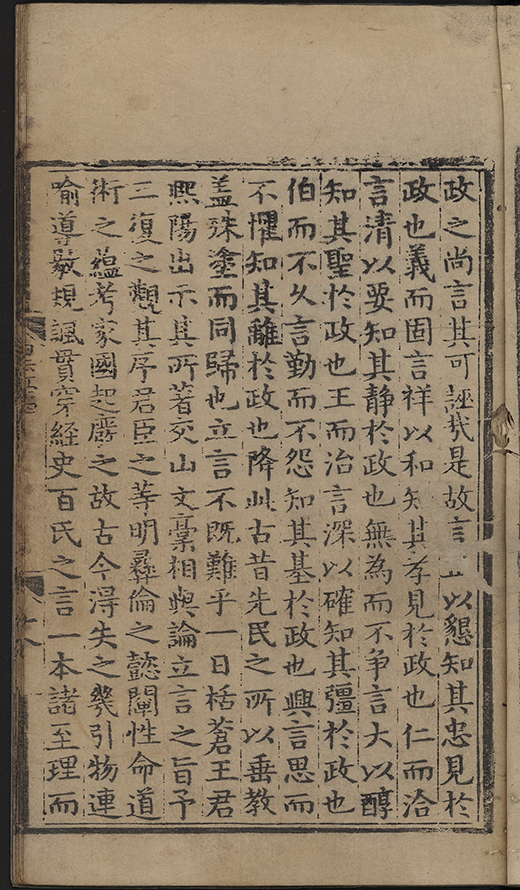 政之尚言其可誣哉是故言以懇知其忠見於
政也義而固言祥以和知其孝見於政也仁而洽
言清以要知其静於政也無為而不争言大以醇
知其聖於政也王而治言深以確知其彊於政也
伯而不久言勤而不怨知其基於政也興言思而
不懼知其離於政也降此古昔先民之所以垂教
盖殊塗而同歸也立言不既難乎一日栝蒼王君
熙陽出示其所著交山文稾相與論立言之旨予
三復之觀其序君臣之等明彝倫之懿闡性命道
術之蘊考家國起廢之故古今淂失之幾引物連
喻導敭規諷貫穿經史百氏之言一本諸至理而